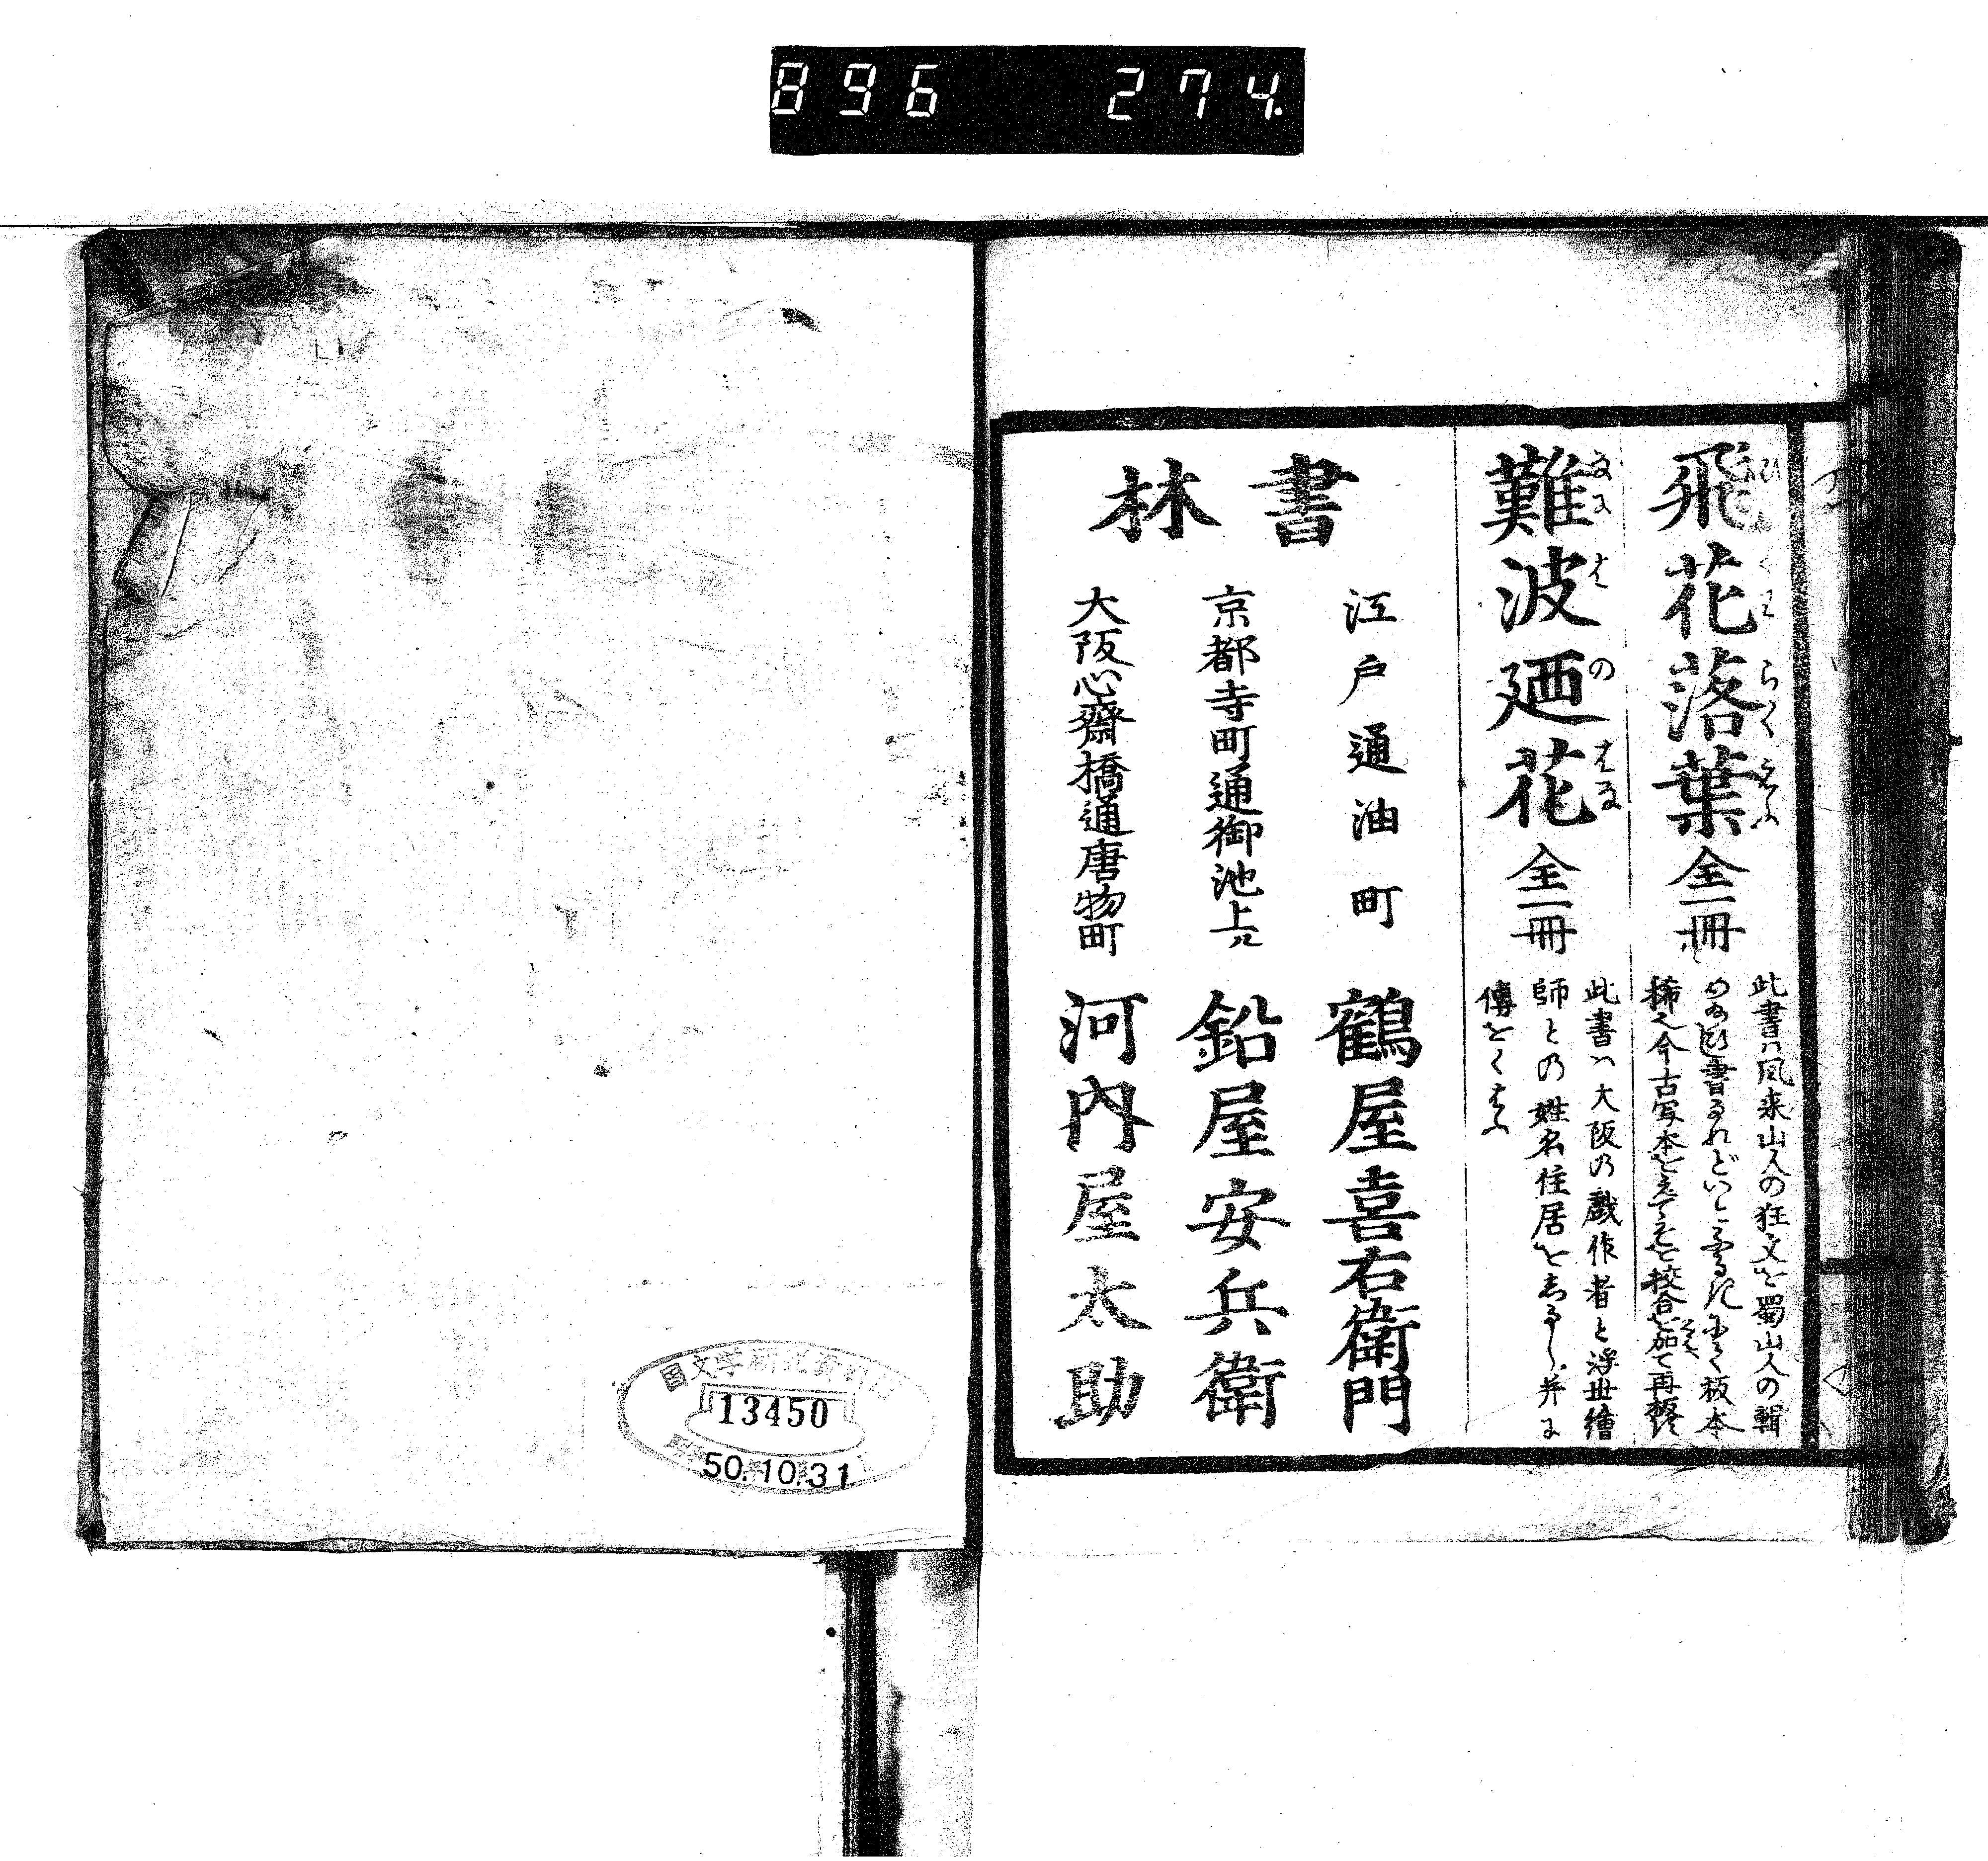 896 274
飛花落葉 全一冊
此書ハ風来山人の狂文を蜀山人の輯
書なれど
板本
稀也今古写本をえてそを校合を加て再板
難波廼花 全一冊
なには の はな
此書ハ大阪の戯作者と浮世繪
師との姓名住居をしるし并に
傳をくはふ
書林
江戸通油町 鶴屋喜右衛門
京都寺町通御池上ル 鉛屋安兵衛
大阪心齋橋通唐物町 河内屋太助
國文学研究資料
13450
50.10.31